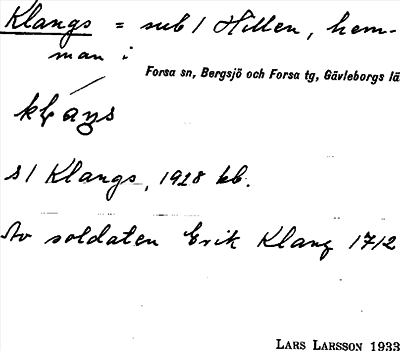 Klangs = sub/ Hillen, hem-
man i
Forsa sn, Bergsjö och Forsa tg, Gävleborgs lä
s/ Klangs, 1928 kb.
Av soldaten Erik Klang 1712
LARS LARSSON 1933